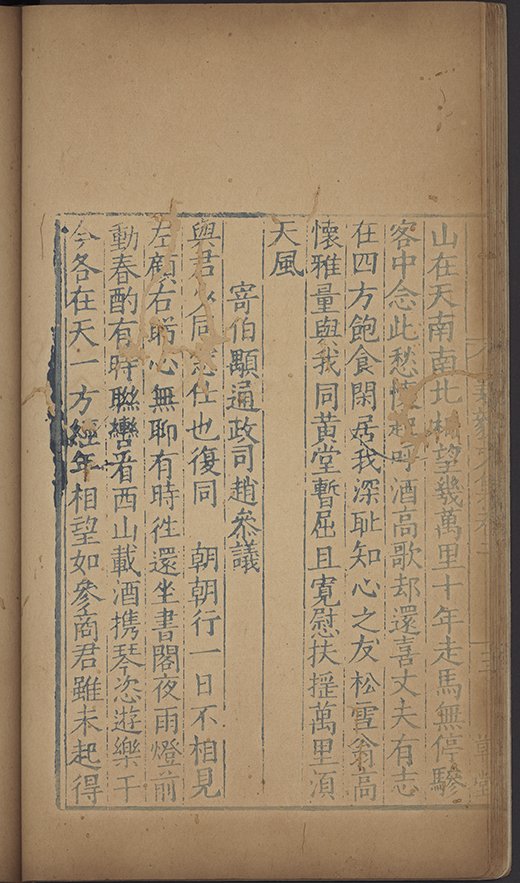 山在天南南北相望幾萬里十年走馬無停驂
客中念此愁懷起呼酒高歌却還喜丈夫有志
在四方飽食閑居我深耻知心之友松雪翁高
懷雅量與我同黄堂暫屈且寛慰扶揺萬里湏
天風
寄伯顒通政司趙叅議
與君同志仕也復同朝朝行一日不相見
左顧右盼心無聊有時徃還坐書閣夜雨燈前
動春酌有時聮轡看西山載酒携琴恣遊樂于
今各在天一方經年相望如參商君雖未起得